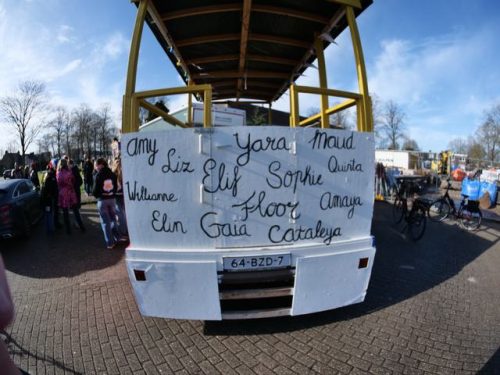 Amy Yara Maud
Liz Sophie Quinta
Willianne Elif Floor Amaya
Elin Gaia Cataleya
64-BZD-7